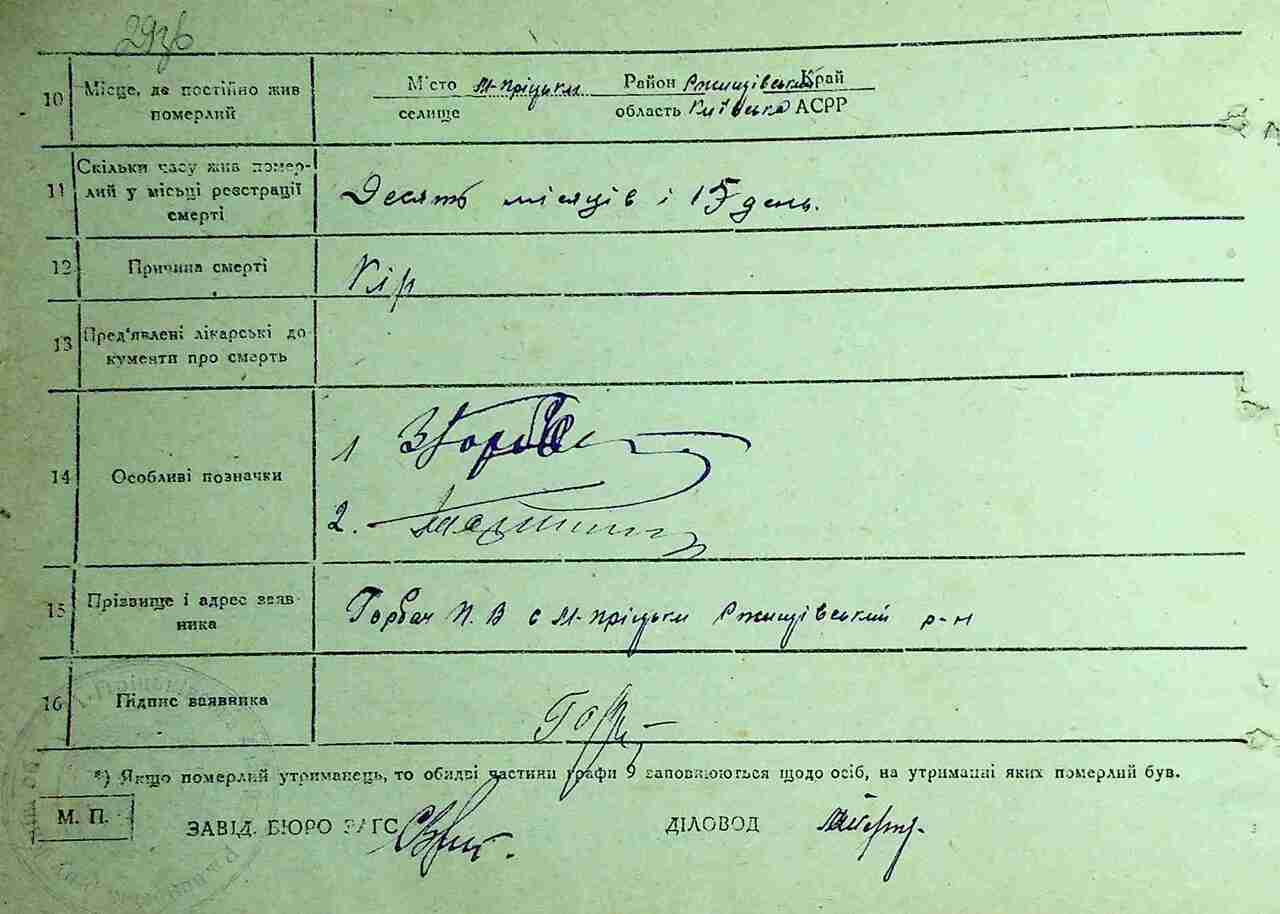 10 Місце, де постійно жив померлий
М'сто М-Пріцьки Район Ржищівський Край
селище область Київська АСРР
11 Скільки часу жив помер-
лий у місці реєстрації
смерті
Десять місяців і 15 день.
12 Причина смерті
Кір
13 Пред'явлені лікарські до
кументи про смерть
14 Особливі позначки
1
2.
15 Прізвище і адрес заяв-
ника
Горбач П. В с М-Пріцьки Ржищівський р-н
16 Підпис заявника
*) Якщо померлий утриманець, то обидві частини графи 9 заповнюються щодо осіб, на утриманні яких померлий був.
М. П.
ЗАВІД. БЮРО ЗАГС ДІЛОВОД